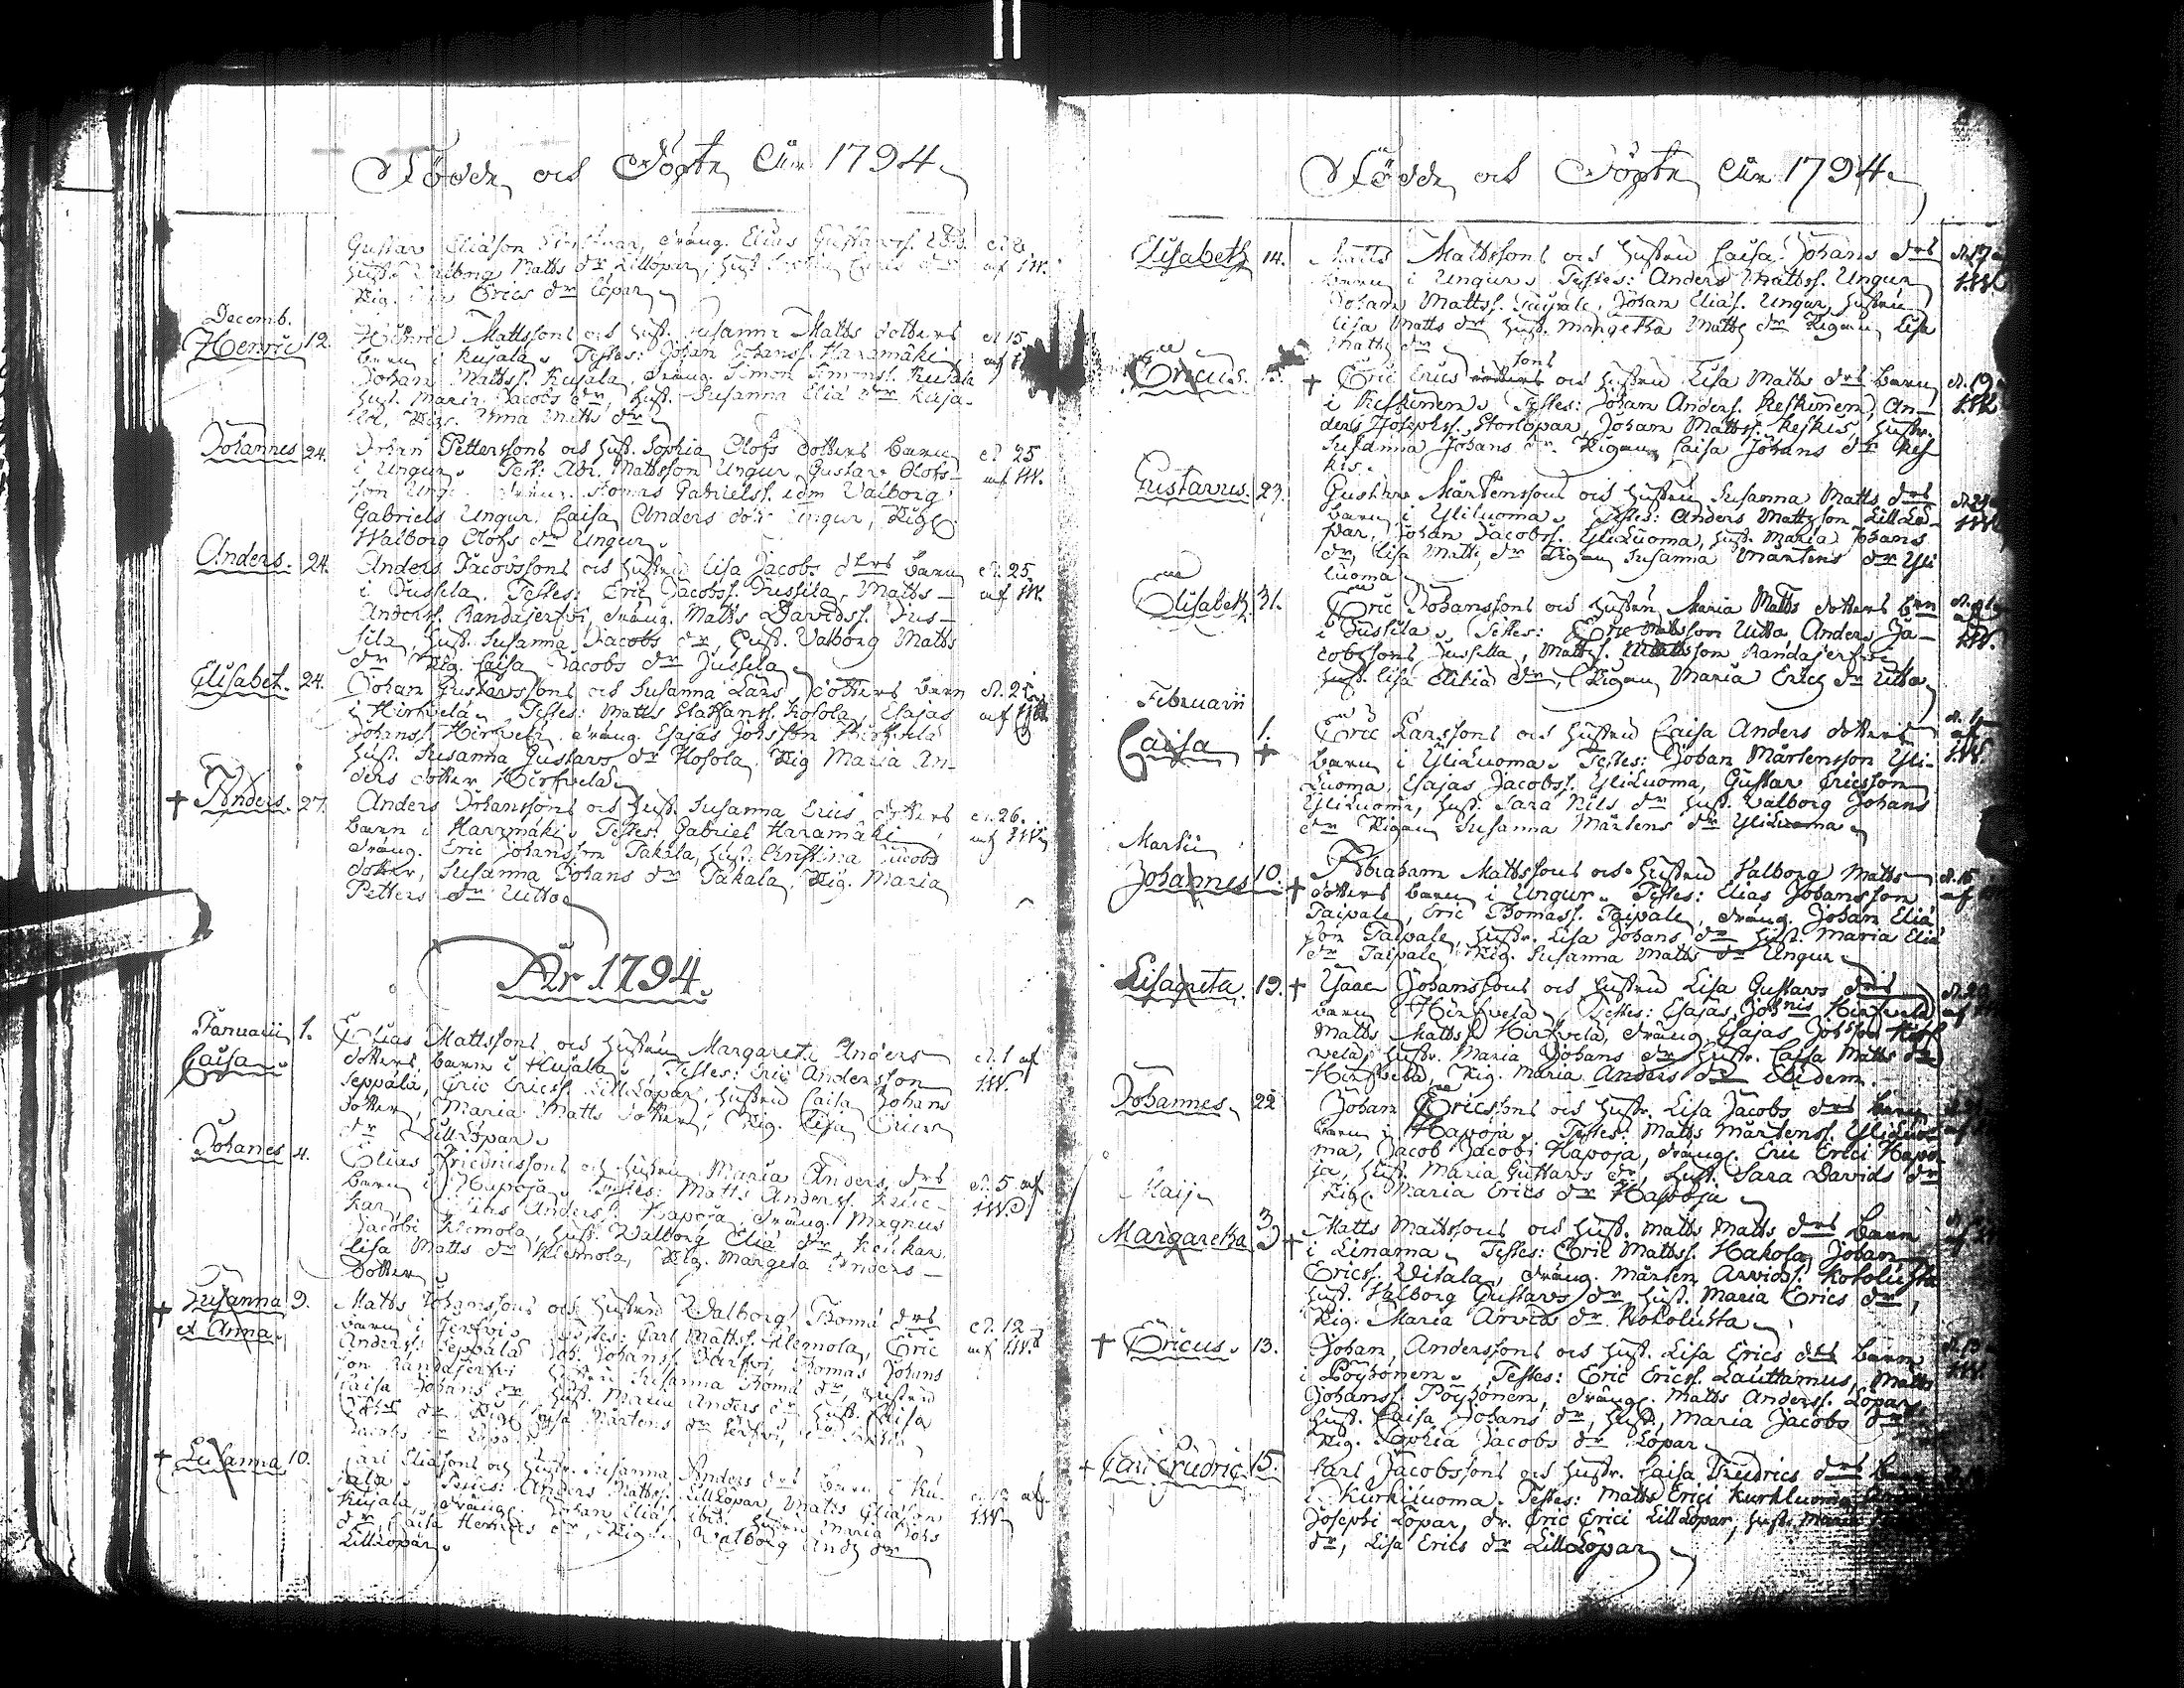 Födde och Döpte År 1794.
Gustav Eliasson dräng. Elias Gustavss. d. 8
hust. Walborg Matts dr Lillöpar, hust. af IW.
Pig. Erics dr Löpar
Decemb.
Henric 12. Henric Mattssons och hust. Susanna Matts dotters d. 15
barn i Kujala. Testes: Johan Johanss. Haramäki, af
Johan Mattss. Kujala, dräng. Simon Simonss. Kujala
hust. Maria Jacobs dr, hust. Susanna Eliæ dr Kuja-
la, Pig. Anna Matts dr
Johannes 24. Johan Petterssons och hust. Sophia Olofs dotters barn d. 25
i Ungur. Test: Abr. Mattsson Ungur, Gustav Olofs- af IW.
son Ungur, dräng. Thomas Gabrielss. idm Valborg
Gabriels Ungur, Caisa Anders dotr Ungur, Pig.
Walborg Olofs dr Ungur.
Anders. 24. Anders Jacobssons och hustru Lisa Jacobs dtrs barn d. 25.
i Jussila. Testes: Eric Jacobss. Jussila, Matts af IW.
Anderss. Randajerfvi, dräng. Matts Davidss. Jus-
sila, hust. Susanna Jacobs dr, hust. Valborg Matts
dr Pig. Caisa Jacobs dr Jussila
Elisabet. 24. Johan Gustavssons och Susanna Lars dotters barn d. 25
i Hirfvelä. Testes: Matts Staffanss. Kosola, Esajas af
Johanss. Hirfvelä, dräng. Esajas Johsson Hirfvelä
hust. Susanna Gustavs dr Kosola, Pig Maria An-
ders dotter Hirfvelä
+ Anders. 27. Anders Johanssons och hust. Susanna Erics dotters d. 26.
barn i Haramäki. Testes: Gabriel Haramäki, af IW.
dräng. Eric Johansson Takala, hust. Christina Jacobs
dotter, Susanna Johans dr Takala, Pig. Maria
Petters dr Uitto
År 1794.
Januarii 1. Elias Mattssons och hustru Margareta Anders d. 1 af
Caisa. dotters barn i Kujala. Testes: Eric Andersson IW.
Seppälä, Eric Ericss. Lillöpar, hustru Caisa Johans
dotter, Maria Matts dotter, Pig. Lisa Erics
dr LillLöpar.
Johanes 4. Elias Fridricssons och hustru Maria Anders drs d. 5 af
barn i Hapoja. Testes: Matts Anderss. Keic- IW.
kar, Anderss. Hapoja, dräng. Magnus
Jacobi Klemola, hust. Walborg Eliæ dr Keickar
Lisa Matts dr Klemola, Pig. Margeta Anders
dotter
+ Susanna 9. Matts Johanssons och hustru Walborg Thomæ drs d. 12
et Anna. barn i Jerfvi. Testes: Carl Mattss. Klemola, Eric af IW.
Anderss. Seppälä, Joh. Johanss. Järfvi, Thomas Johans
son Randajerfvi, hustru Susanna Thomæ dr, hustru
Caisa Johans dr, hust. Maria Anders dr hust. Caisa
dr Pig. Lisa Mårtens dr Jerfvi,
Jacobs dr Löpar
+ Susanna 10. Carl Eliæsons och hustr. Susanna Anders drs barn i Ku-
jala. Testes: Anders Mattss. LillLöpar, Matts Eliasson af
Kujala, dräng. Johan Eliass. ibid. hustru Maria IW.
dr, Caisa Henrics dr, Pigan Walborg Ands dr
LillLöpar.
Födde och Döpte År 1794.
Elisabeth 14. Matts Mattssons och hustru Caisa Johans drs d. 17
barn i Ungur. Testes: Anders Mattss. Ungur IW
Johan Mattss. Taipale, Johan Eliæs. Ungur, hustru
Lisa Matts dr hust. Margetha Matts dr Pigan Lisa
Matts dr
sons
Ericus. + Eric Erics och hustru Lisa Matts drs barn d. 19
i Keskinen. Testes: Johan Anderss. Keskinen, An- IW
ders Josephss. Storlöpar, Johan Mattss. Keskis, hustr.
Susanna Johans dr. Pigan, Caisa Johans dr Kes
kis.
Gustavus. 23. Gustav Mårtenssons och hustru Susanna Matts drs
barn i Yliluoma. Testes: Anders Mattsson LillLö- IW
par, Johan Jacobss. YliLuoma, hust. Maria Johans
dr, Lisa Matts dr Pigan Susanna Mårtens dr Yli
luoma
Elisabeth. 31. Eric Johanssons och hustru Maria Matts dotters brn
i Jussila. Testes: Eric Mattsson Uitto, Anders Ja- IW.
cobssons Jussila, Mattss. Mattsson Randajerfvi
hust. Lisa Eliæ dr, Pigan Maria Erics dr Uitto
Februarii
Caisa 1. + Eric Larssons och hustru Caisa Anders dotters
barn i YliLuoma. Testes: Johan Mårtensson Yli- IW.
Luoma, Esajas Jacobss. YliLuoma, Gustav Ericsson
YliLuoma, hust. Sara Nils dr hust. Valborg Johans
dr Pigan Susanna Mårtens dr YliLuoma
Martii
Johannes 10. + Abraham Mattssons och hustru Valborg Matts d. 15
dotters barn i Ungur. Testes: Elias Johansson af
Taipale, Eric Thomass. Taipale, dräng. Johan Eliæ
son Taipale, hustr. Lisa Johans dr hust. Maria Eliæ
dr Taipale, Pig. Susanna Matts dr Ungur
Lisagreta. 19. + Isaac Johanssons och hustru Lisa Gustavs drs
barn i Hirfvelä. Testes: Esajas Johnis Hirfvelä
Matts Mattss. Hirfvelä, dräng. Esajas Johsson Hirf
velä, hustr. Maria Johans dr hustr. Caisa Matts dr
Hirfvelä, Pig. Maria Anders dr ibidem.
Johannes. 22 Johan Ericssons och hustr. Lisa Jacobs drs barn
barn i Hapoja. Testes: Matts Mårtenss. YliLuo
ma, Jacob Jacobi Hapoja, dräng. Eric Erici Hapo
ja, hust. Maria Gustavs dr, hust. Sara Davids dr
Pig. Maria Erics dr Hapoja
Maij
Margaretha 3. + Matts Mattssons och hust. Matts Matts drs barn
i Linama. Testes: Eric Mattss. Hakola, Johan
Ericss. Visala, dräng. Mårten Arvidss. Kokolusta
hust. Valborg Gustavs dr, hust. Maria Erics dr,
Pig. Maria Arvids dr Kokolusta
+ Ericus. 13. Johan Anderssons och hust. Lisa Erics drs barn
i Pöyhönen. Testes: Eric Ericss. Lauttamus, Matts
Johanss. Pöyhönen, dräng. Matts Anderss. Löpar,
hust. Caisa Johans dr, hust. Maria Jacobs dr
Pig. Sophia Jacobs dr Löpar
+ Carl Fridric 15. Carl Jacobssons och hustr. Caisa Fridrics drs barn
i Kurkiluoma. Testes: Matts Erici Kurkluoma,
Josephi Löpar, dr. Eric Erici LillLöpar, hust. Maria
dr, Lisa Erics dr LillLöpar